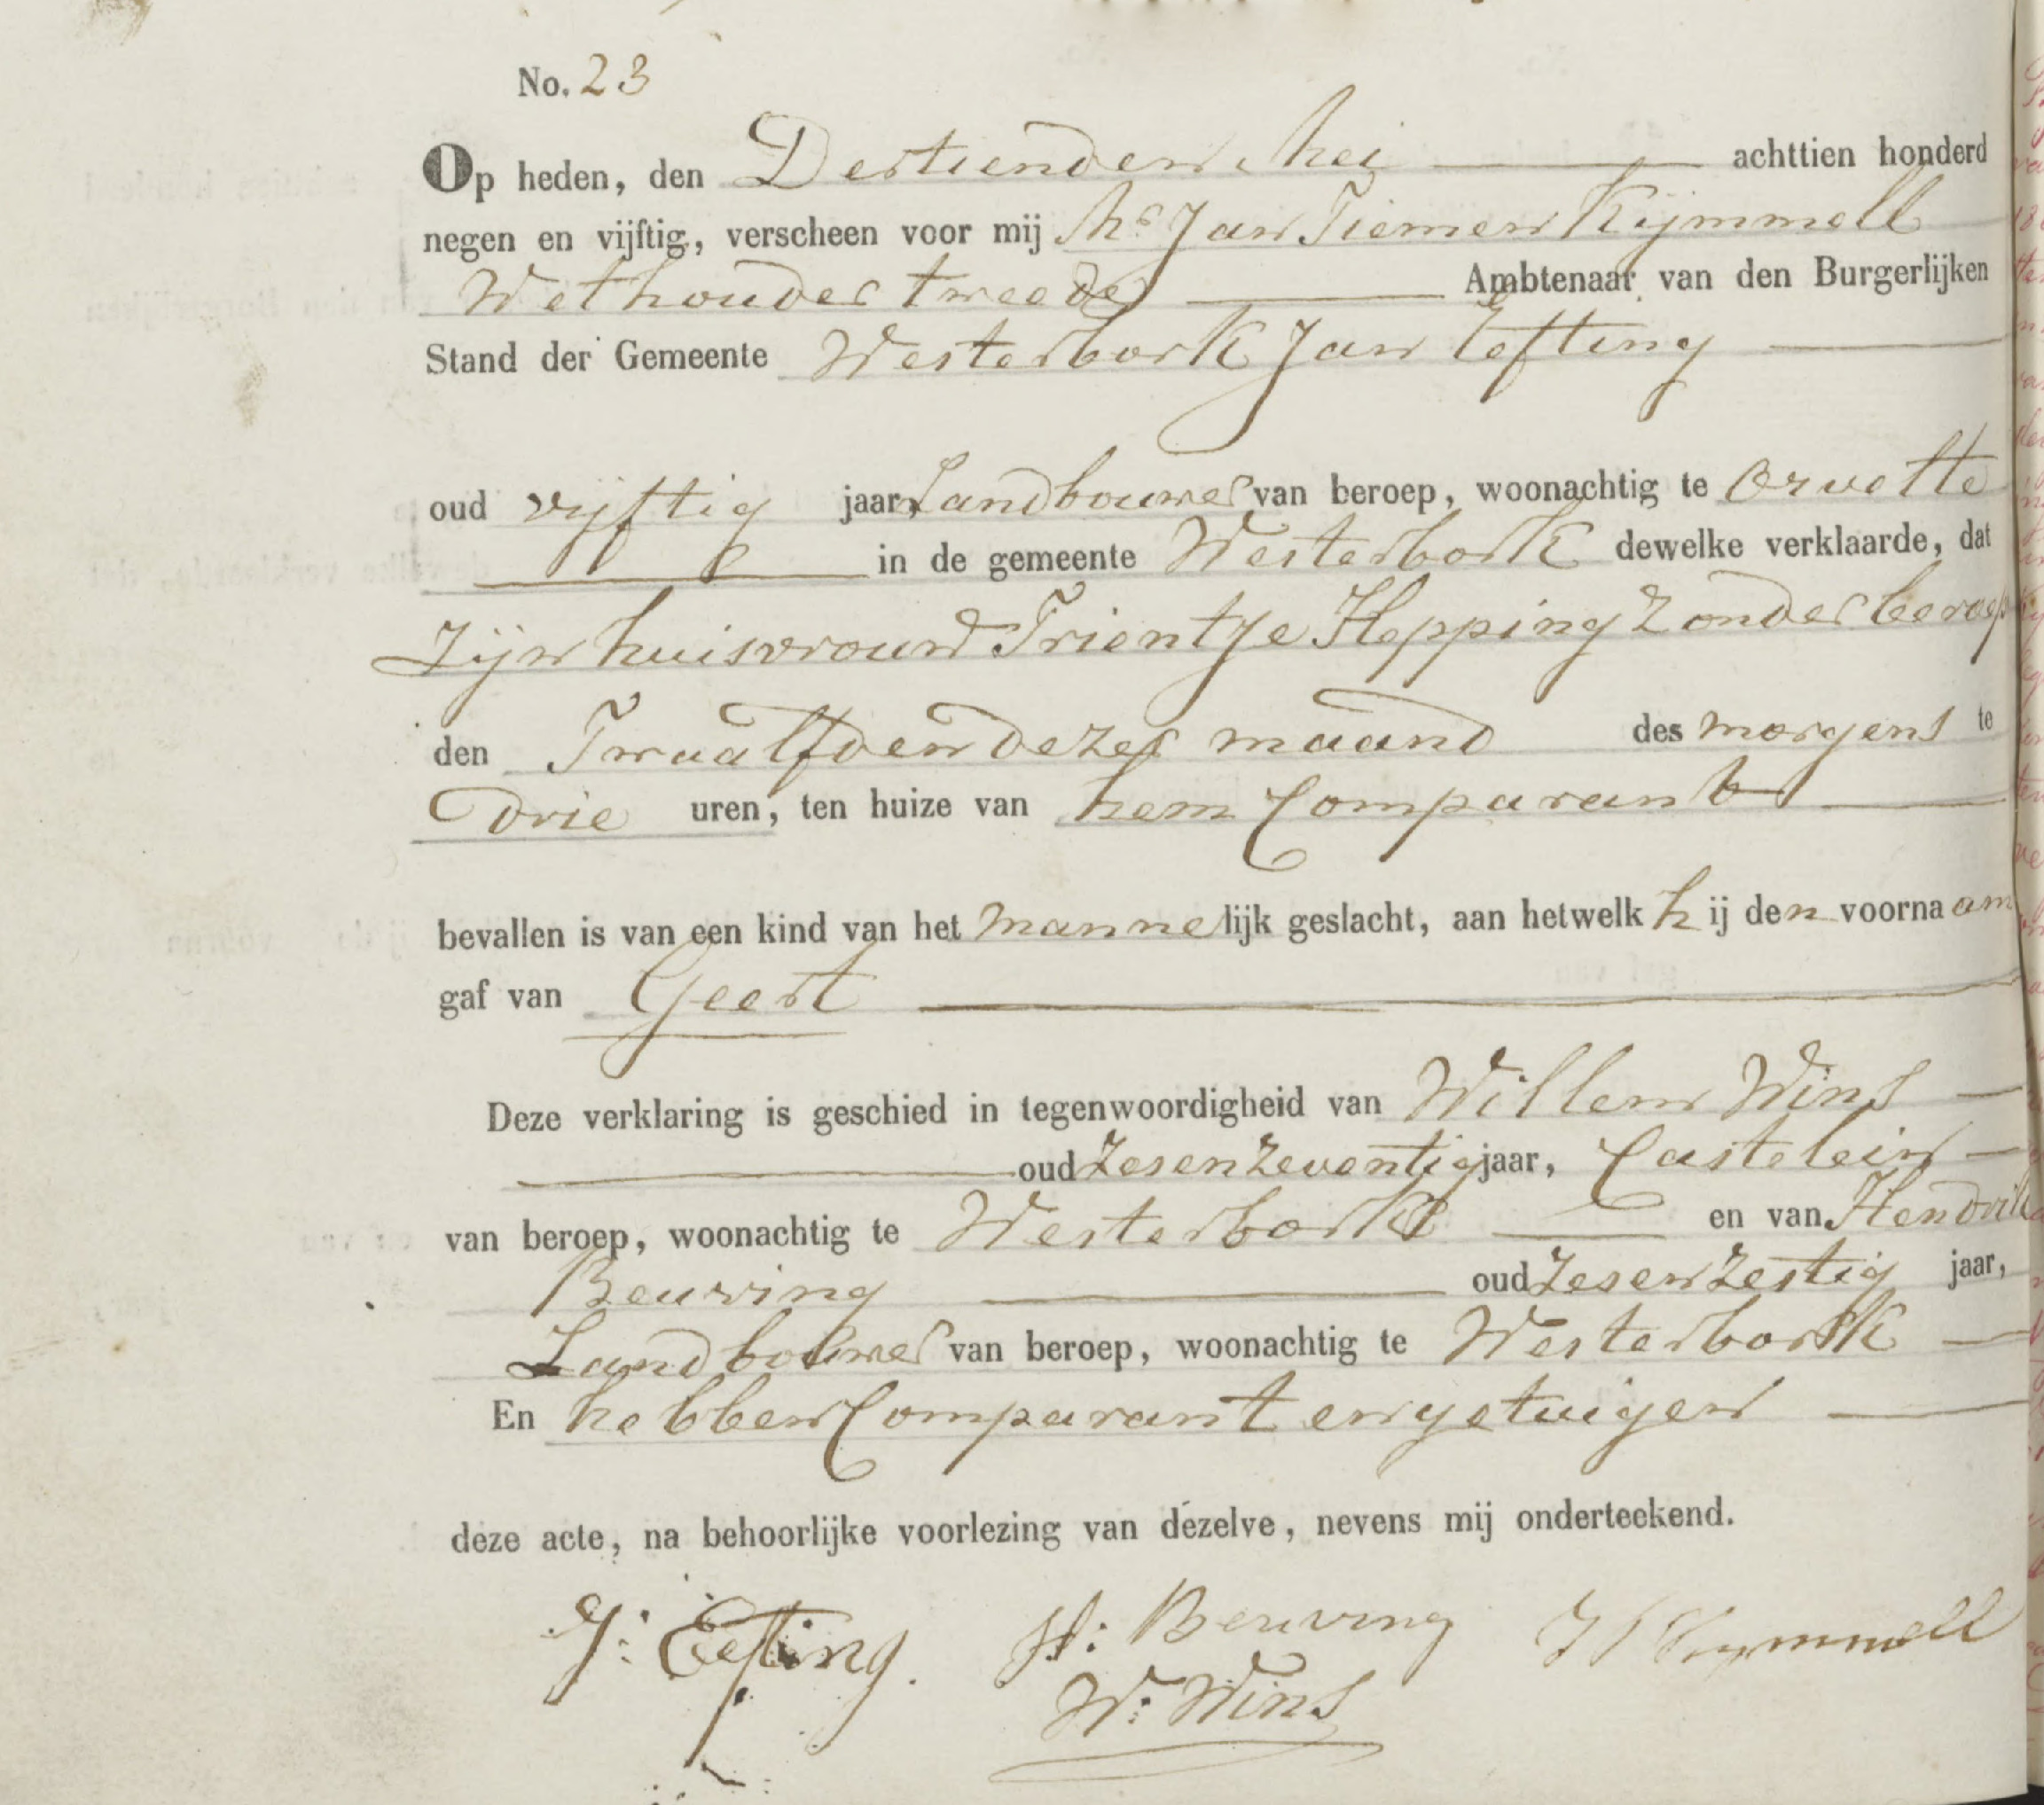 No. 23
Op heden, den Dertienden Mei achttien honderd
negen en vijftig, verscheen voor mij Mr Jan Tiemen Kijmmell
Wethouder tweede Ambtenaar van den Burgerlijken
Stand der Gemeente Westerbork Jan Eefting
oud vijftig jaar, Landbouwer van beroep, woonachtig te Orvelte
in de gemeente Westerbork dewelke verklaarde, dat
Zijn huisvrouw Trientje Hepping Zonder beroep
den Twaalfden dezer maand des morgens te
Drie uren, ten huize van hem Comparant
bevallen is van een kind van het mannelijk geslacht, aan hetwelk hij den voornaam
gaf van Geert
Deze verklaring is geschied in tegenwoordigheid van Willem Wins
oud Zesenzeventig jaar, Castelein
van beroep, woonachtig te Westerbork en van Hendrik
Beuving oud Zesenzestig jaar,
Landbouwer van beroep, woonachtig te Westerbork
En hebben Comparant en getuigen
deze acte, na behoorlijke voorlezing van dezelve, nevens mij onderteekend.
J: Eefting. H: Beuving JT Kymmell
W: Wins